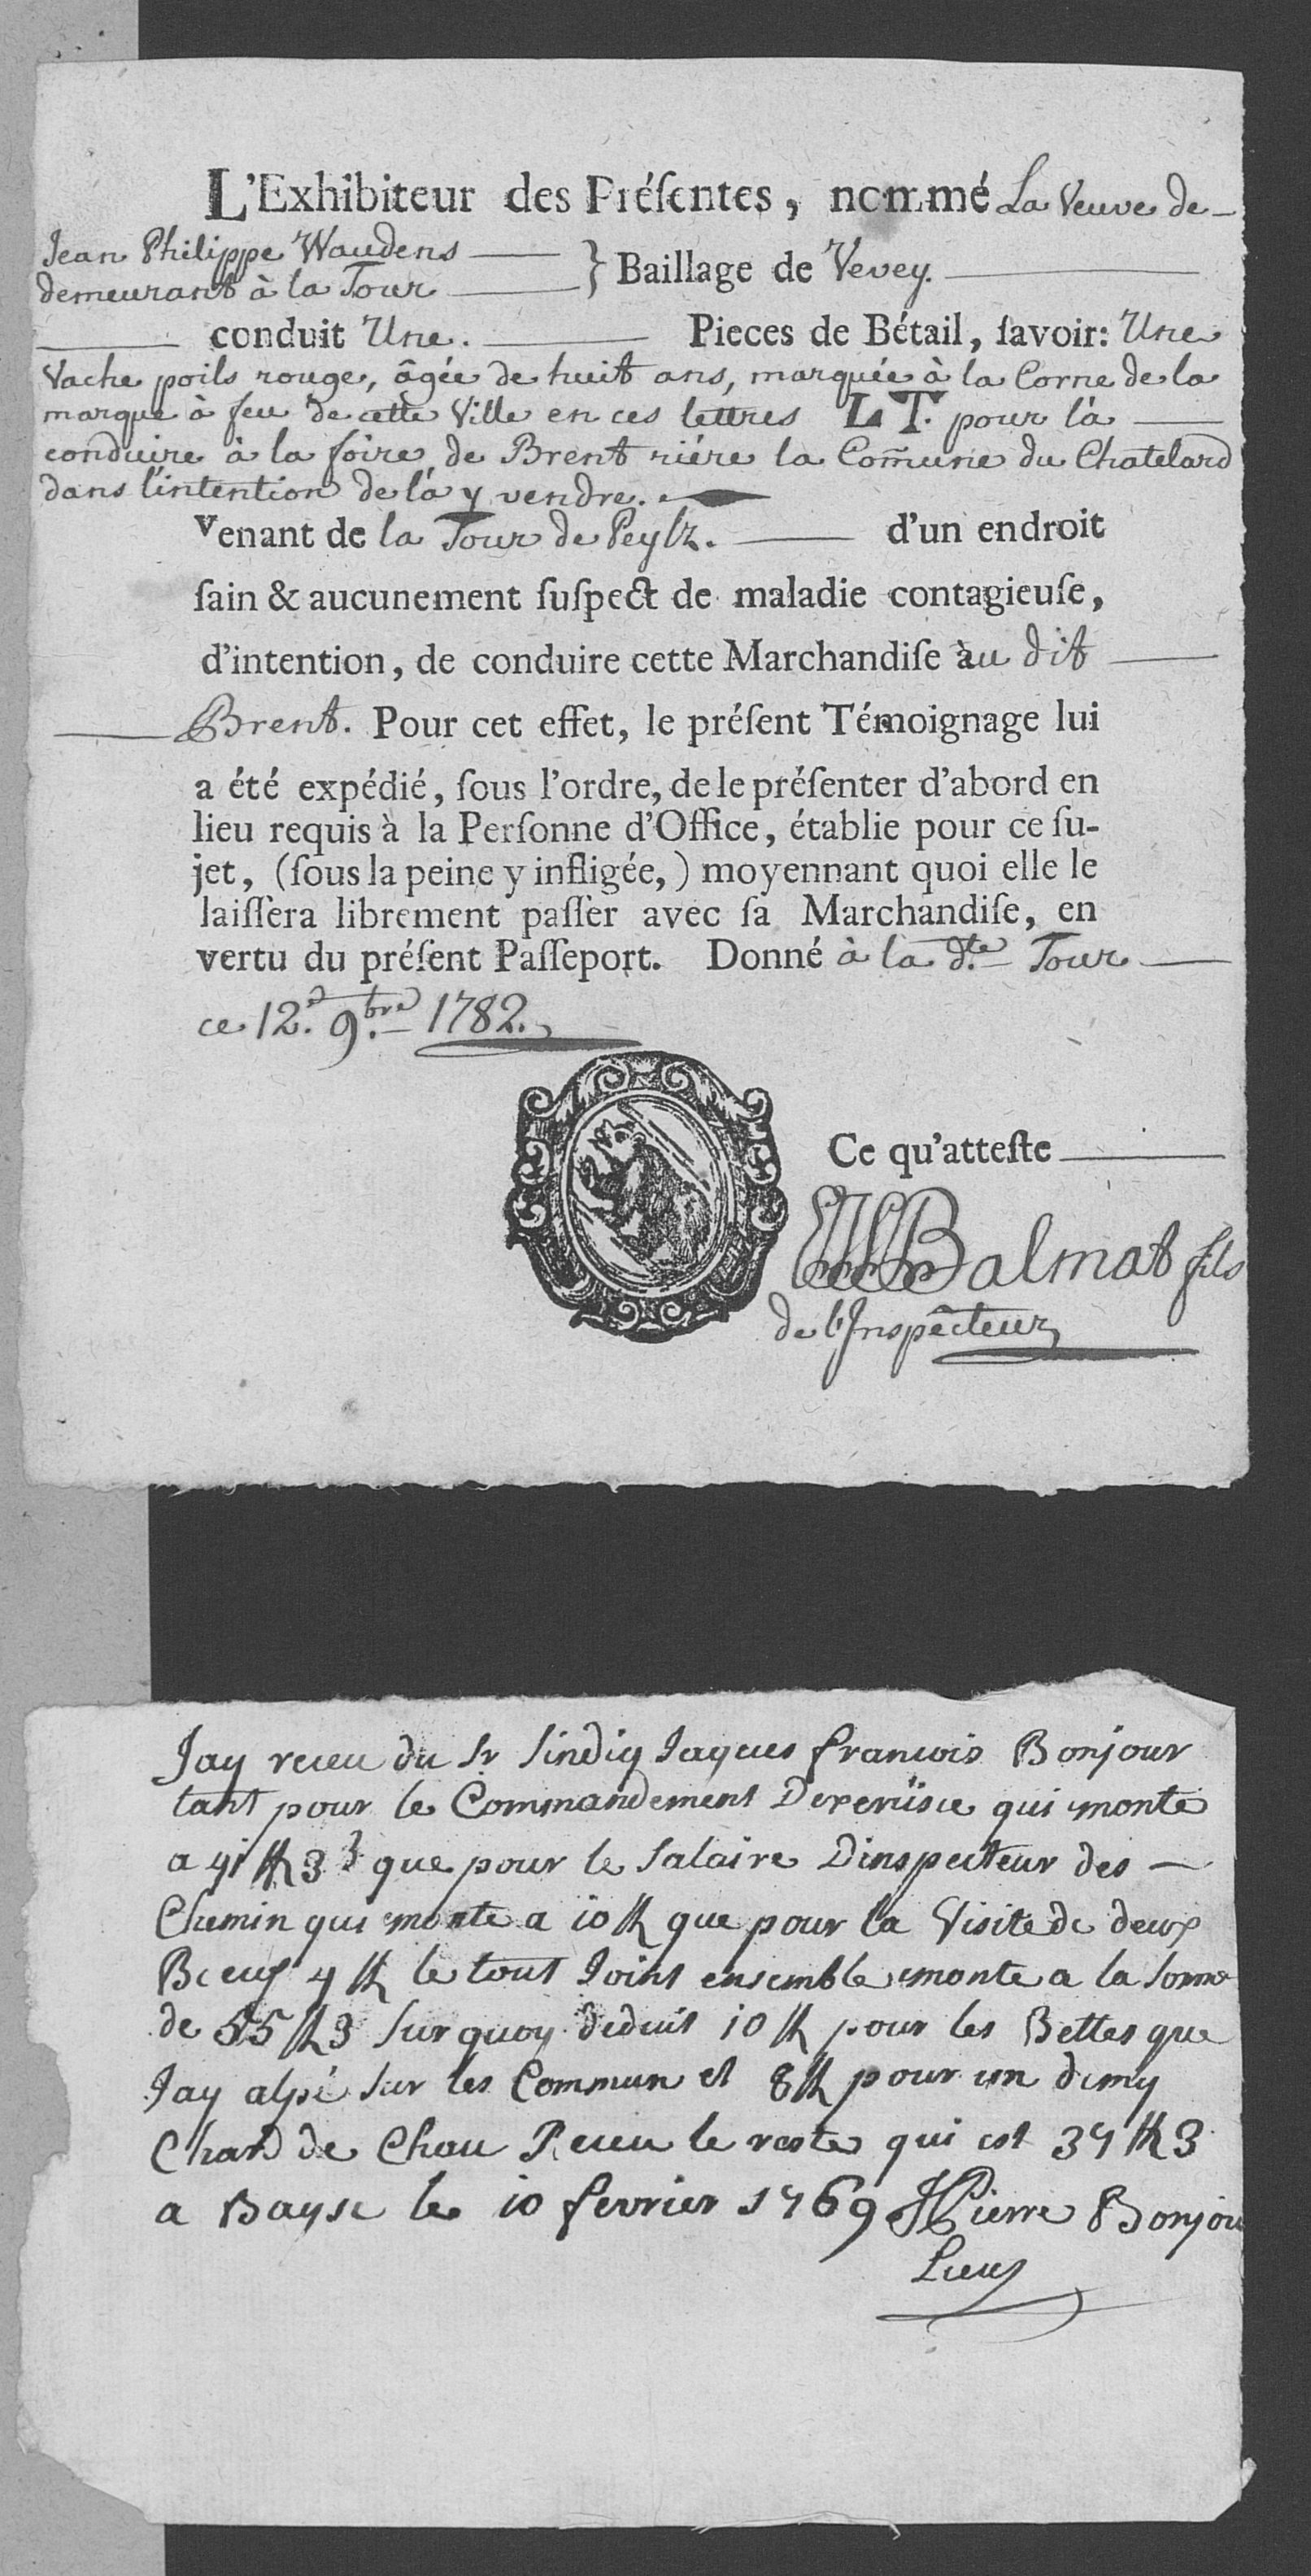 L'Exhibiteur des Préſentes, nommé La Veuve de
Jean Philippe Waudens
demeurant à la Tour } Baillage de Vevey.
conduit Une. Pieces de Bétail, ſavoir: Une
Vache poils rouge, âgée de huit ans, marquée à la Corne de la
marque à feu de cette Ville en ces lettres L T. pour la
conduire à la foire de Brent riére la Com̃une du Chatelard
dans l'intention de la y vendre.
Venant de la Tour de Peylz. d'un endroit
ſain & aucunement ſuſpect de maladie contagieuſe,
d'intention, de conduire cette Marchandiſe àu dit
Brent. Pour cet effet, le préſent Témoignage lui
a été expédié, ſous l'ordre, de le préſenter d'abord en
lieu requis à la Perſonne d'Office, établie pour ce ſu-
jet, (ſous la peine y infligée,) moyennant quoi elle le
laiſſera librement paſſer avec ſa Marchandiſe, en
vertu du préſent Paſſeport. Donné à la d.te Tour
ce 12.e 9.bre 1782.
Ce qu'atteſte
Balmat fils
de l'Inspécteur
Jay receu du Sr Sindiq Jaques francois Bonjour
tant pour le Commandement qui monte
a 41 ℔ 3 que pour le Salaire Dinspecteur des
Chemin qui monte a 10 ℔ que pour la Visite de deux
Bœuf 4 ℔ le tout Joint ensemble monte a la Somme
de 55 ℔ 3 Sur quoy deduit 10 ℔ pour les Bettes que
Jay alpé Sur les Commun et 8 ℔ pour un demy
Chard de Chau Receu le reste qui est 37 ℔ 3
a Bayse le 10 fevrier 1769 Pierre Bonjou